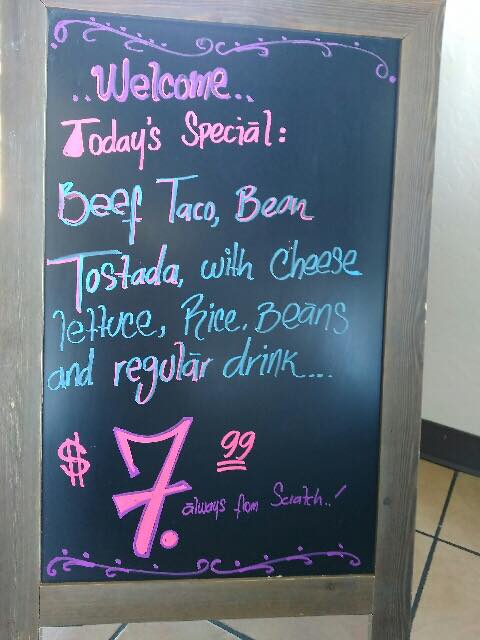 ..Welcome..
Today's Special:
Beef Taco, Bean
Tostada, with Cheese
lettuce, Rice. Beans
and regular drink....
$7.99
always from Scratch..!